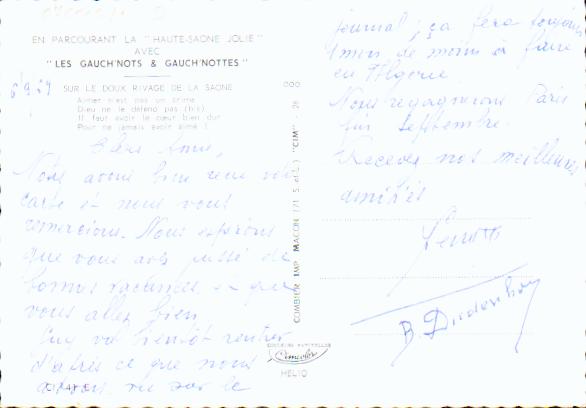 EN PARCOURANT LA "HAUTE-SAONE JOLIE"
AVEC
"LES GAUCH'NOTS & GAUCH'NOTTES"
SUR LE DOUX RIVAGE DE LA SAONE
Aimer n'est pas un crime
Dieu ne le défend pas (bis)
Il faut avoir le cœur bien dur
Pour ne jamais avoir aimé !
Nous avons bien reçu votre
carte et nous vous
remercions. Nous espérons
que vous avez passé de
bonnes vacances et que
vous allez bien
Guy va bientôt rentrer
d'après ce que nous
avons vu sur le
COMBIER IMP. MACON (71 S.-et-L.) "CIM" - 26
COULEURS NATURELLES
Cimcolor
HELIO
journal ; ça fera toujours
1 mois de moins à faire
en Algérie
Nous regagnerons Paris
fin septembre.
Recevez nos meilleures
amitiés